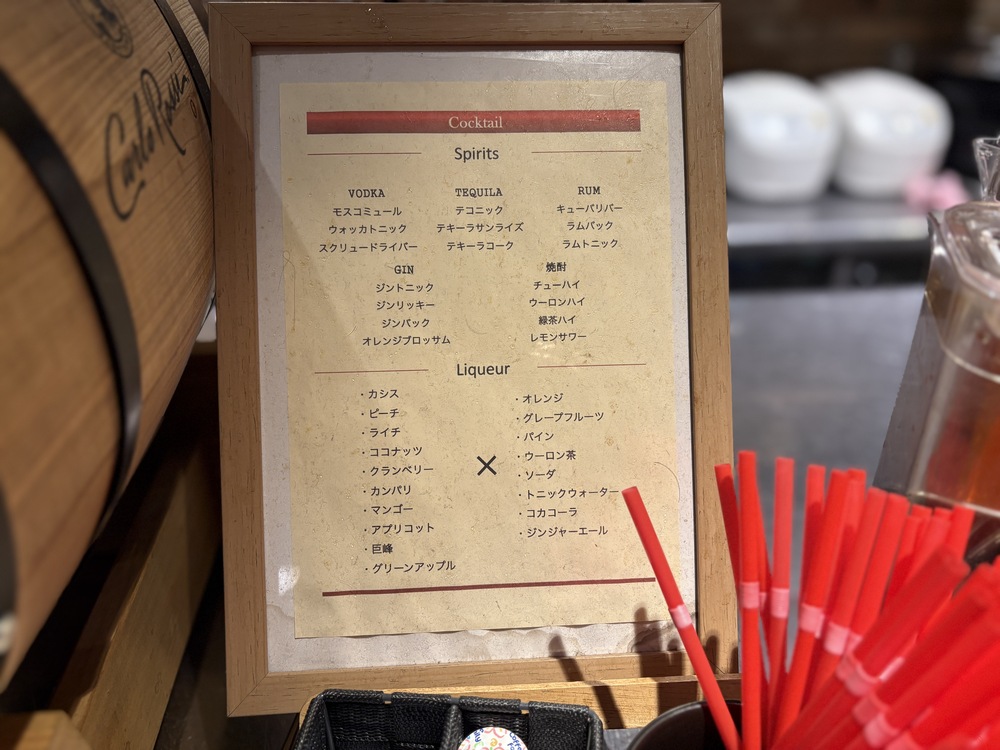 Carlo Rossi
Cocktail
Spirits
VODKA
モスコミュール
ウォッカトニック
スクリュードライバー
TEQUILA
テコニック
テキーラサンライズ
テキーラコーク
RUM
キューバリバー
ラムバック
ラムトニック
GIN
ジントニック
ジンリッキー
ジンバック
オレンジブロッサム
焼酎
チューハイ
ウーロンハイ
緑茶ハイ
レモンサワー
Liqueur
・カシス
・ピーチ
・ライチ
・ココナッツ
・クランベリー
・カンパリ
・マンゴー
・アプリコット
・巨峰
・グリーンアップル
×
・オレンジ
・グレープフルーツ
・パイン
・ウーロン茶
・ソーダ
・トニックウォーター
・コカコーラ
・ジンジャーエール